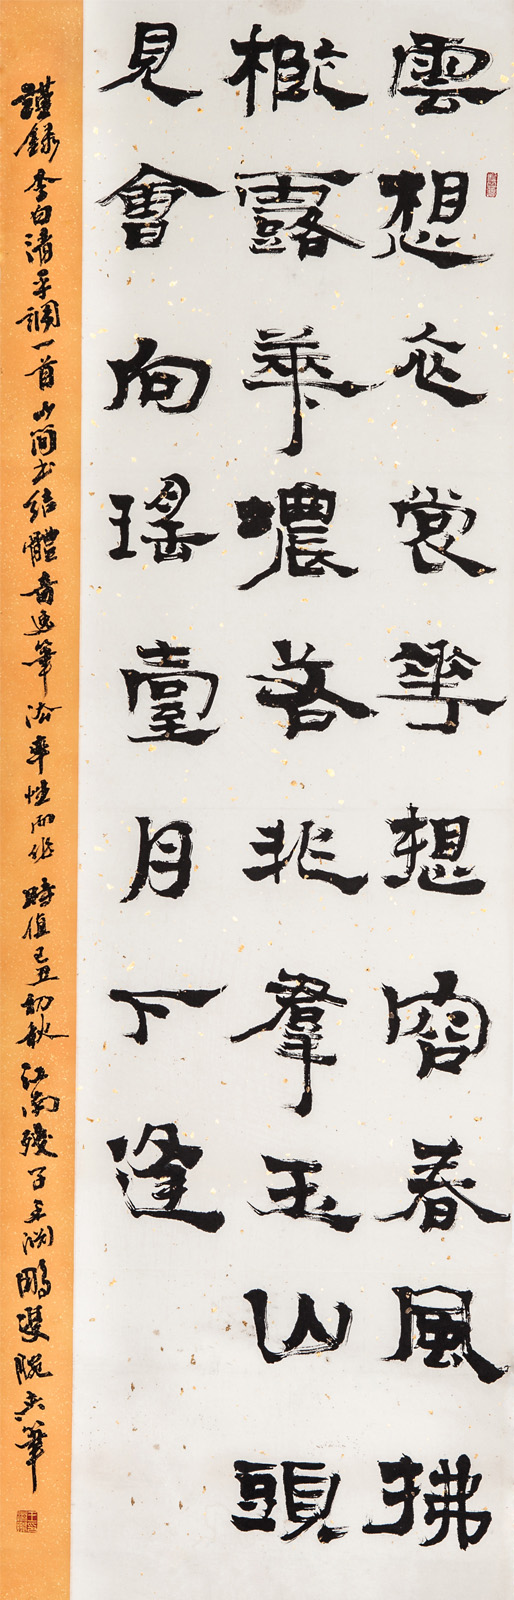 雲想衣裳花想容春風拂
檻露華濃若非羣玉山頭
見會向瑤臺月下逢
謹錄李白清平調一首以簡書結體者逸筆法率性而作時值己丑初秋江南殘子王浏鵬雙腕共筆